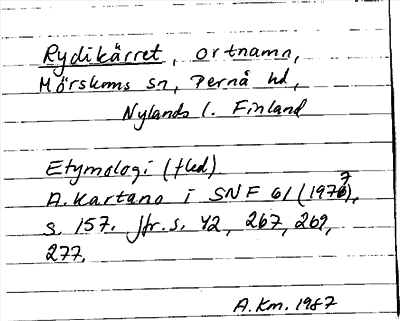 Rydikärret, ortnamn,
Mörskoms sn, Pernå hd,
Nylands l. Finland
Etymologi (fled)
A. Kartano i SNF 61 (1977),
s. 157. Jfr. s. 42, 267, 269,
277.
A.Km. 1987